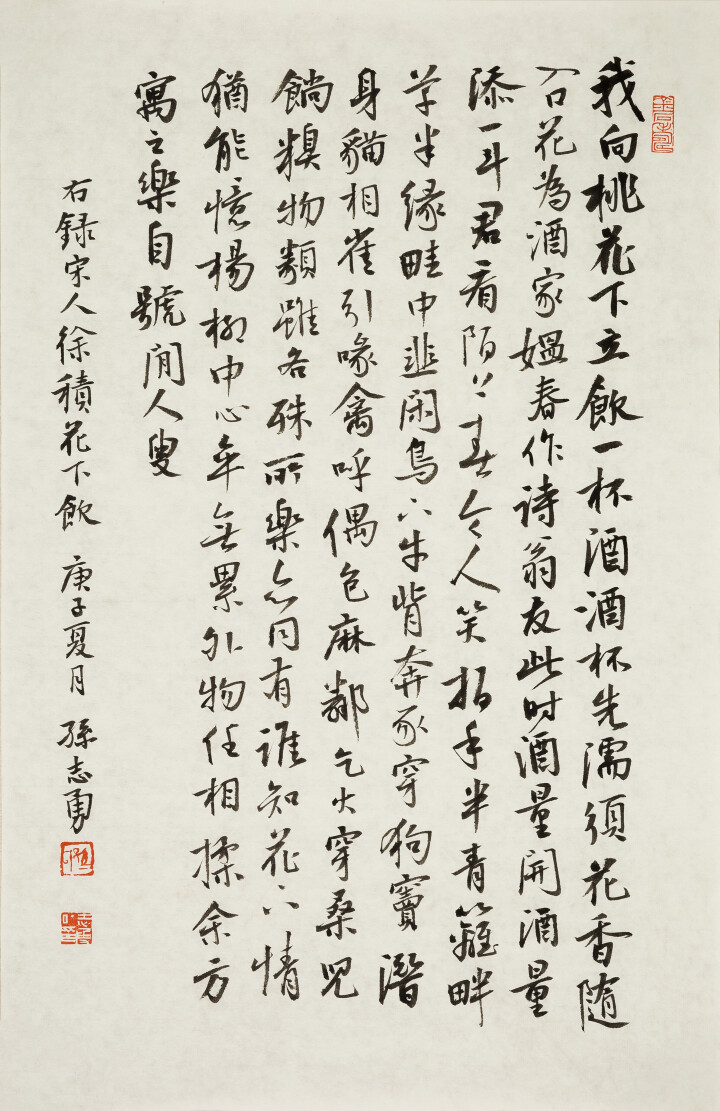 我向桃花下立飲一杯酒酒杯先濡須花香随
入口花為酒家媼春作诗翁友此时酒量開酒量
添一斗君看陌上春令人笑拍手半青籬畔
草半緑畦中韭闲鳥下牛背奔豕穿狗竇潛
身貓相雀引喙禽呼偶包麻鄰乞火穿桑兒
餉糗物類雖各殊所樂亦同有誰知花下情
猶能憶楊柳中心卒無累外物任相揉余方
寓之樂自號閒人叟
右録宋人徐積花下飲 庚子夏月 孫志勇